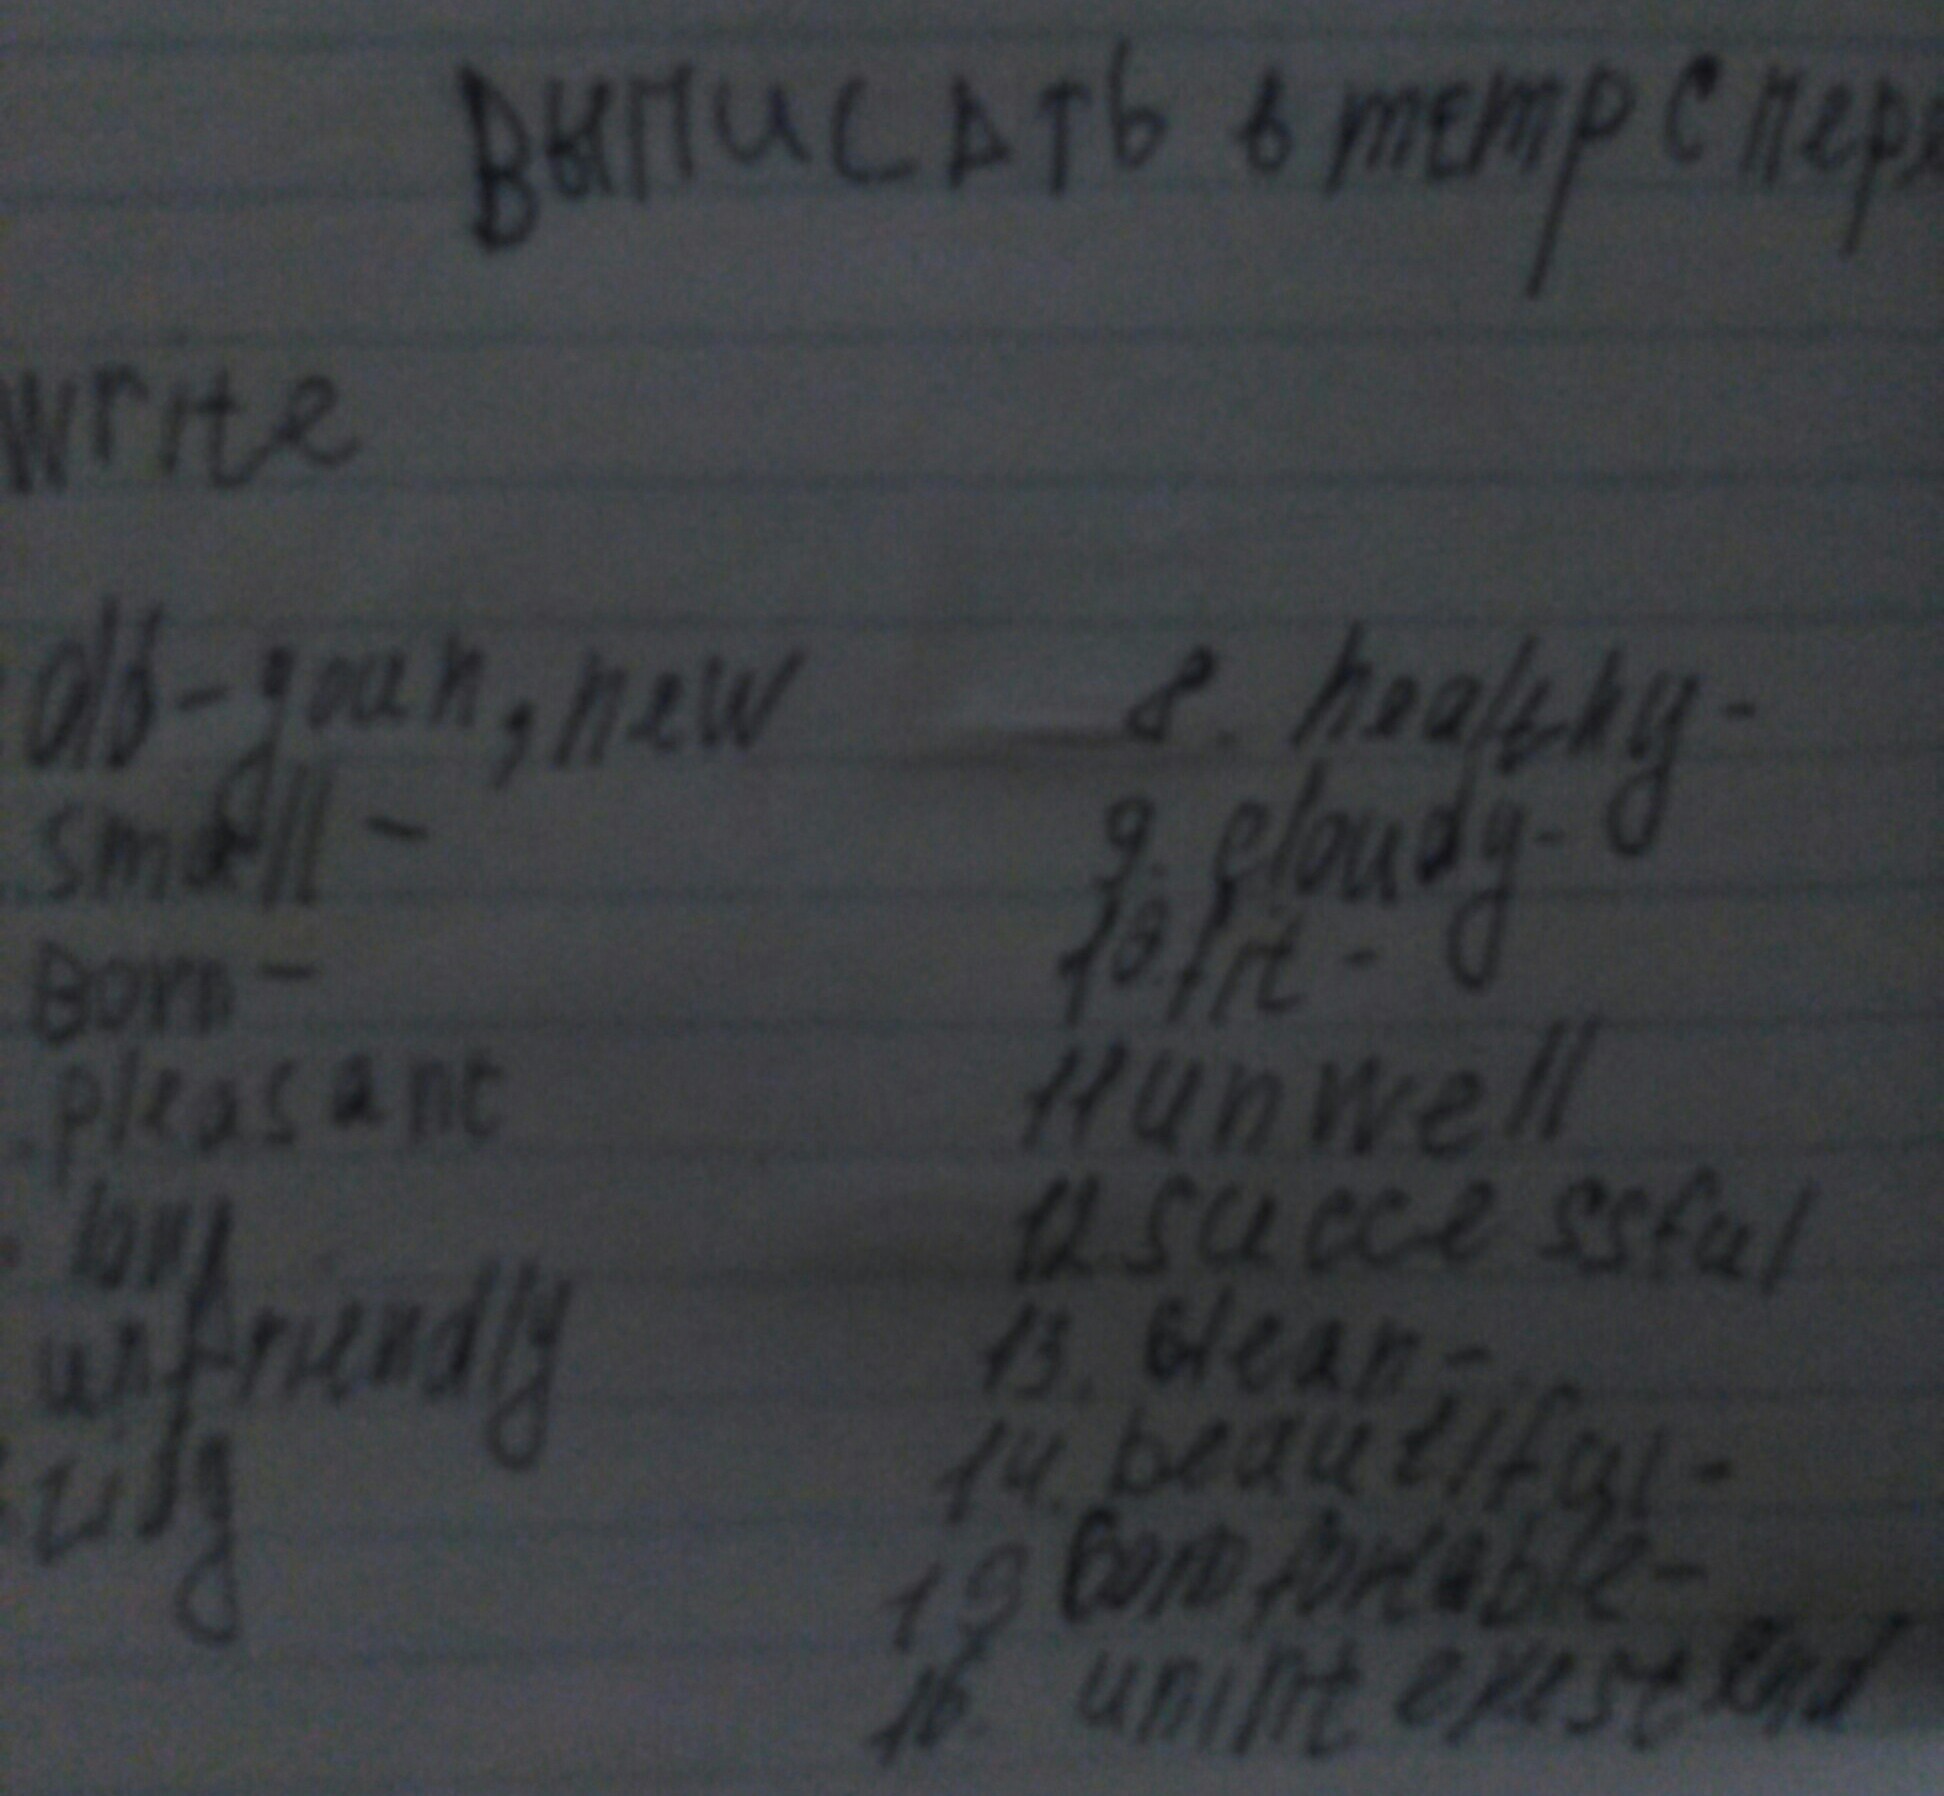 Выписать в тетр с пер
write
old - youn, new
small -
Born -
pleasant
long
unfriendly
ugly
8. healthy -
9. cloudy -
10. fit -
11 unwell
12 successful
13. clean -
14. beautiful -
15 Comfortable -
16.